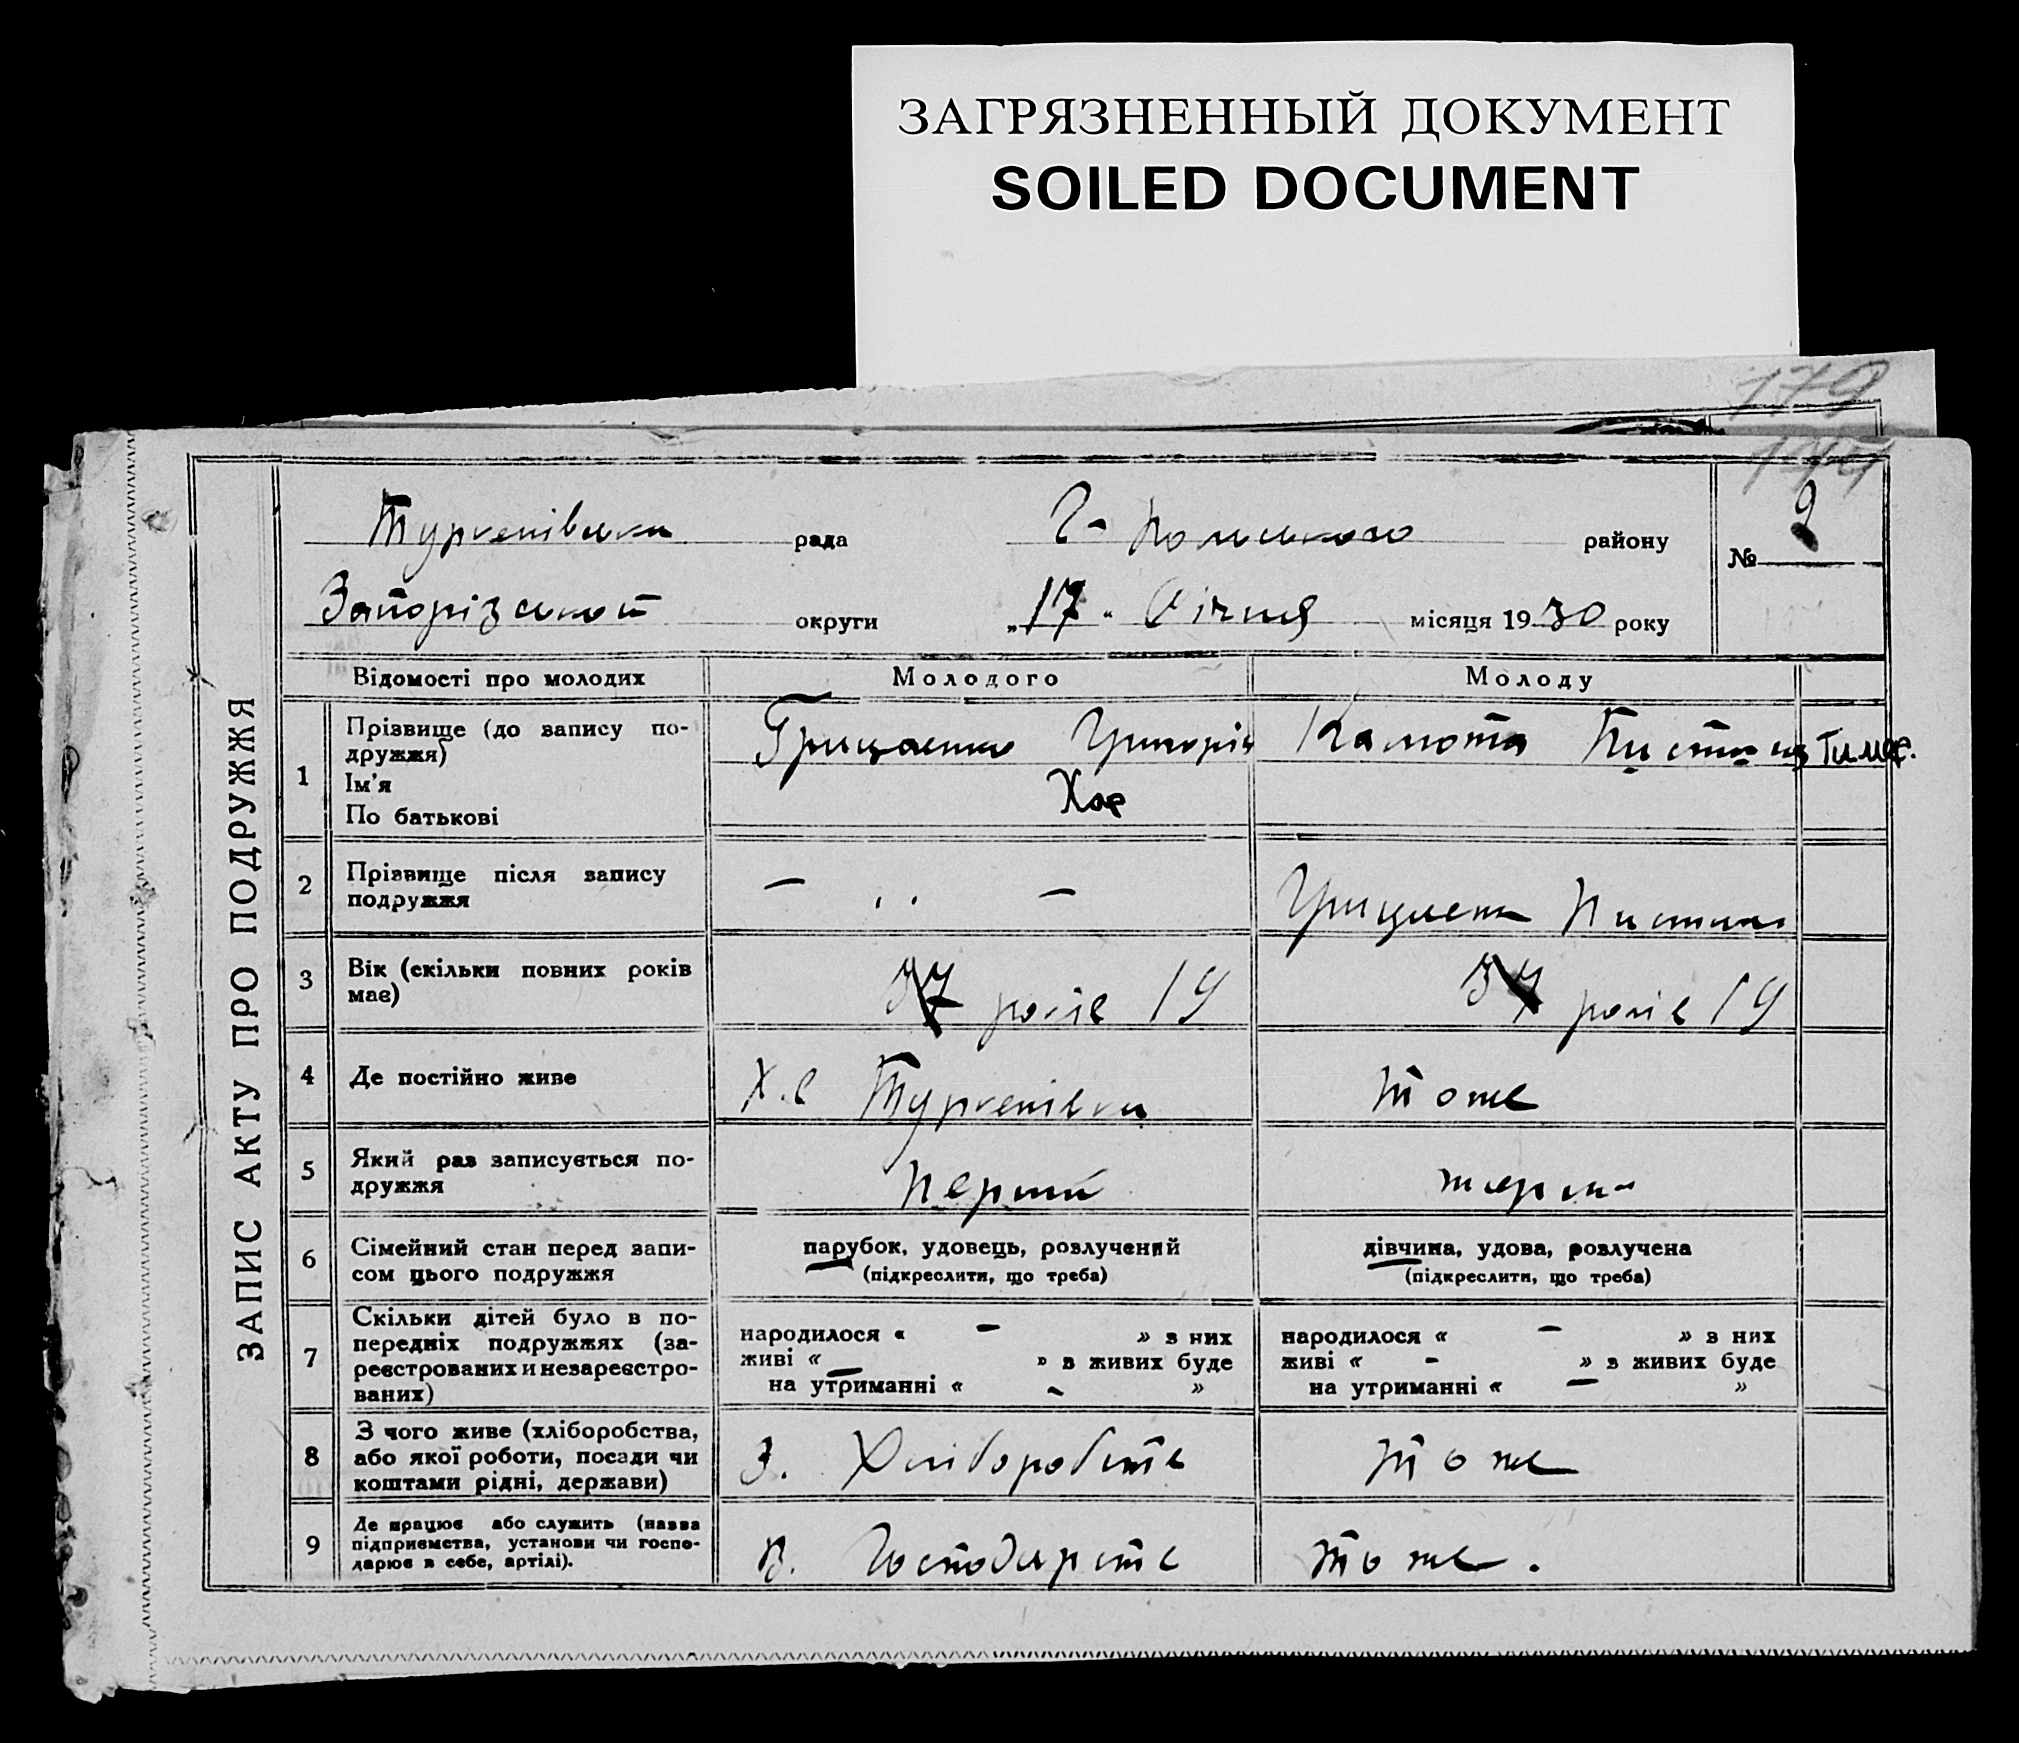 ЗАГРЯЗНЕННЫЙ ДОКУМЕНТ
SOILED DOCUMENT
179
ЗАПИС АКТУ ПРО ПОДРУЖЖЯ
рада Г-Польського району
№ 9
Запорізської округи „17“ Січня місяця 1930 року
Відомості про молодих Молодого Молоду
1 Прізвище (до запису по-
дружжя)
Ім'я
По батькові
Грицаенко Григорій
Хар
Камота Пистина Тимоф.
2 Прізвище після запису
подружжя
— „ —
Пистина
3 Вік (скільки повних років
має)
37 років 19
37 років 19
4 Де постійно живе
Х.в Туркенівки
тоже
5 Який раз записується по-
дружжя
перший
6 Сімейний стан перед запи-
сом цього подружжя
парубок, удовець, розлучений
(підкреслити, що треба)
дівчина, удова, розлучена
(підкреслити, що треба)
7 Скільки дітей було в по-
передніх подружжях (за-
реєстрованих и незареєстро-
ваних)
народилося « — » з них
живі « — » з живих буде
на утриманні « - »
народилося « — » з них
живі « - » з живих буде
на утриманні « — »
8 З чого живе (хліборобства,
або якої роботи, посади чи
коштами рідні, держави)
З. Хліборобств
тоже
9 Де працює або служить (назва
підприємства, установи чи госпо-
дарює в себе, артілі).
В. Господарств
тоже.